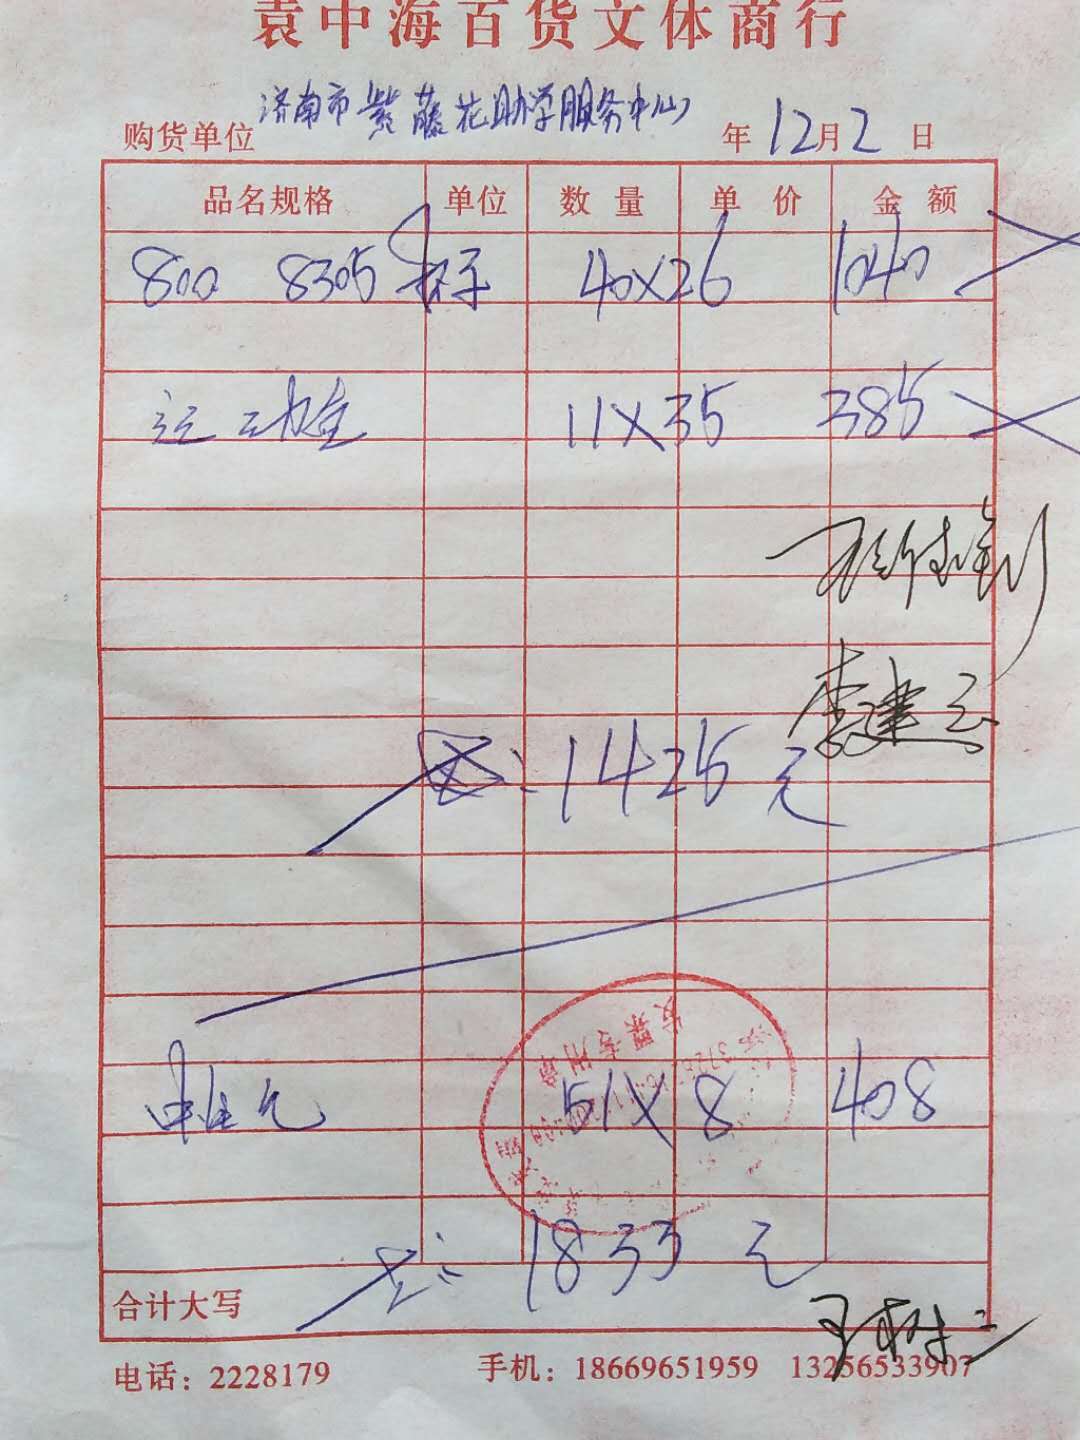 袁中海百货文体商行
购货单位 济南市紫藤花助学服务中心 年 12月 2 日
品名规格 单位 数量 单价 金额
800 8305 杯子 40×26 1040
运动壶 11×35 385
李建云
1425元
发票专用章
51×8 408
1833元
合计大写
王树三
电话：2228179 手机：18669651959 13256533907